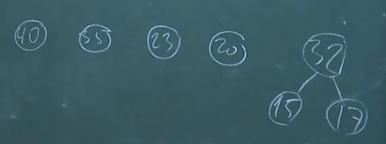 40 35 23 20 32
15 17